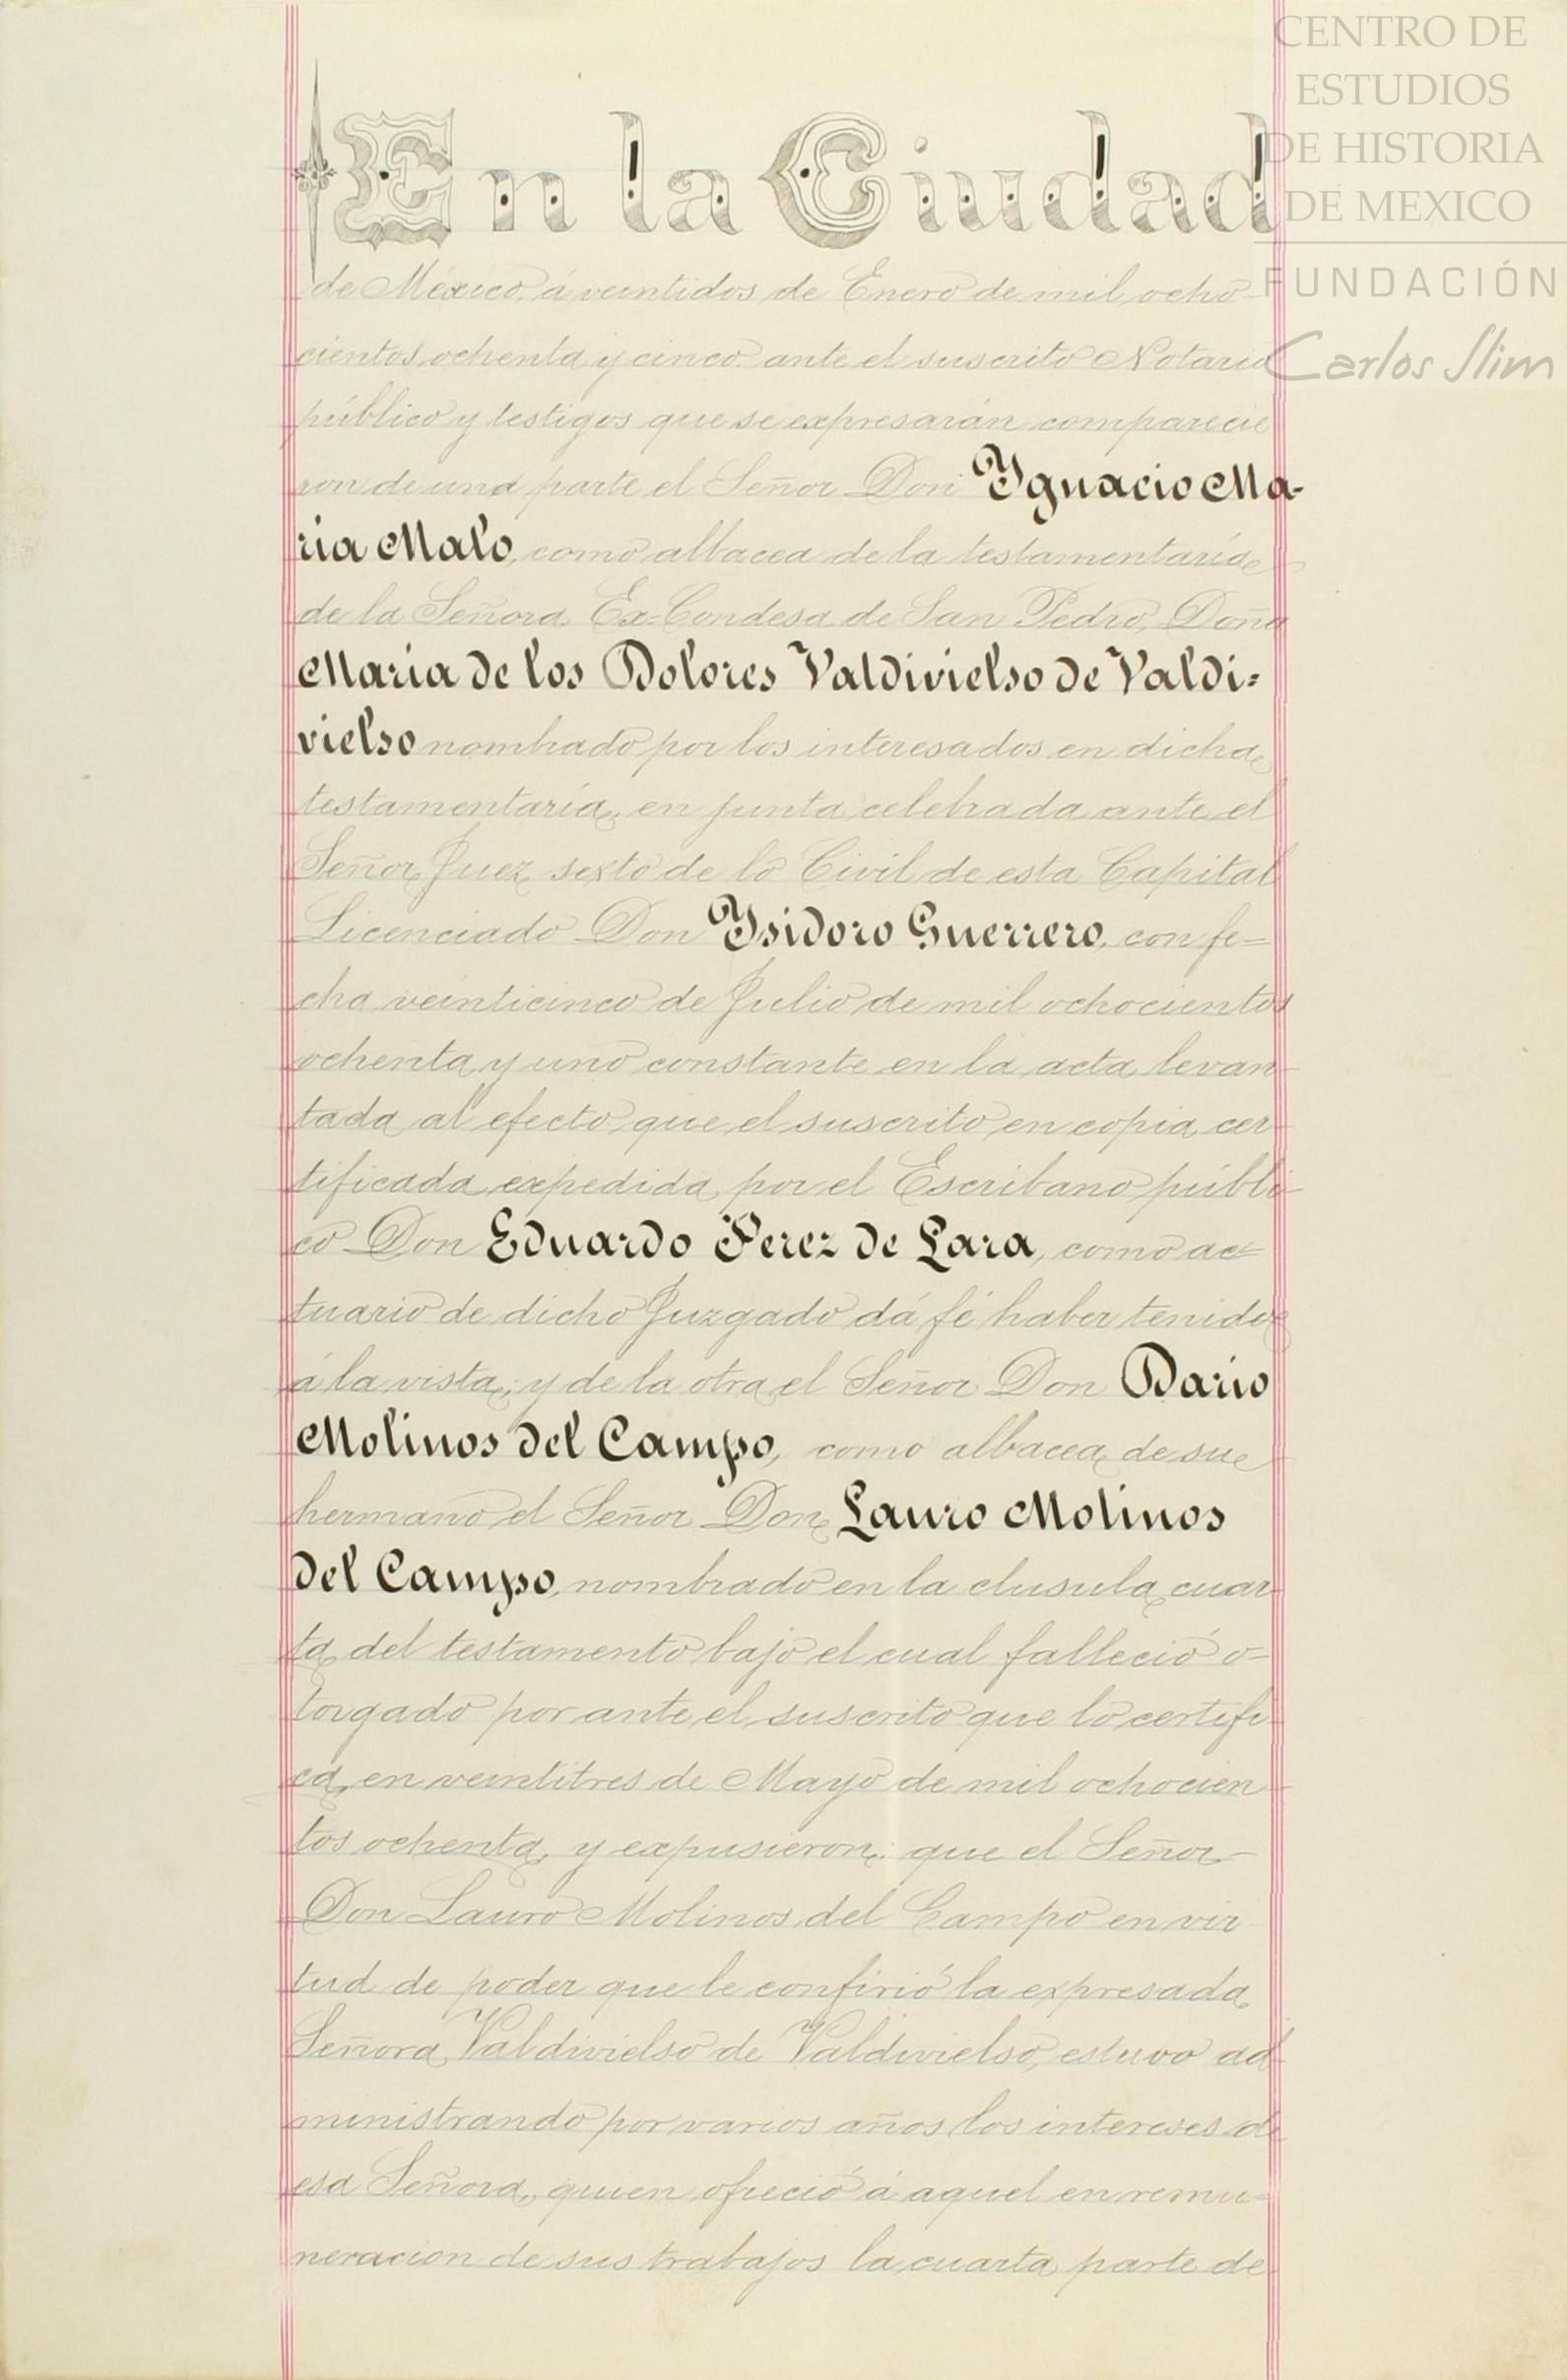 En la Ciudad
de México, á veintidos de Enero de mil ocho-
cientos ochenta y cinco. ante el suscrito Notario
público y testigos que se expresarán comparecie
ron de una parte el Señor Don Ygnacio Ma-
ria Malo, como albacea de la testamentaría
de la Señora Ex-Condesa de San Pedro, Doña
Maria de los Dolores Valdivielso de Valdi-
vielso nombrado por los interesados en dicha
testamentaría, en junta celebrada ante el
Señor Juez sexto de lo Civil de esta Capital
Licenciado Don Ysidoro Guerrero, con fe=
cha veinticinco de Julio de mil ochocientos
ochenta y uno constante en la acta levan-
tada al efecto que el suscrito en copia cer-
tificada expedida por el Escribano públi-
co Don Eduardo Perez de Lara, como ac-
tuario de dicho Juzgado dá fé haber tenido
á la vista; y de la otra el Señor Don Dario
Molinos del Campo, como albacea de su
hermano el Señor Don Lauro Molinos
del Campo, nombrado en la clusula cuar-
ta del testamento bajo el cual falleció o=
torgado por ante el suscrito que lo certifi-
ca, en veintitres de Mayo de mil ochocien-
tos ochenta, y expusieron: que el Señor
Don Lauro Molinos del Campo en vir-
tud de poder que le confirió la expresada
Señora Valdivielso de Valdivielso, estuvo ad-
ministrando por varios años los intereses de
esa Señora, quien ofreció á aquel en remu-
neracion de sus trabajos la cuarta parte de
CENTRO DE
ESTUDIOS
DE HISTORIA
DE MEXICO
FUNDACIÓN
Carlos Slim